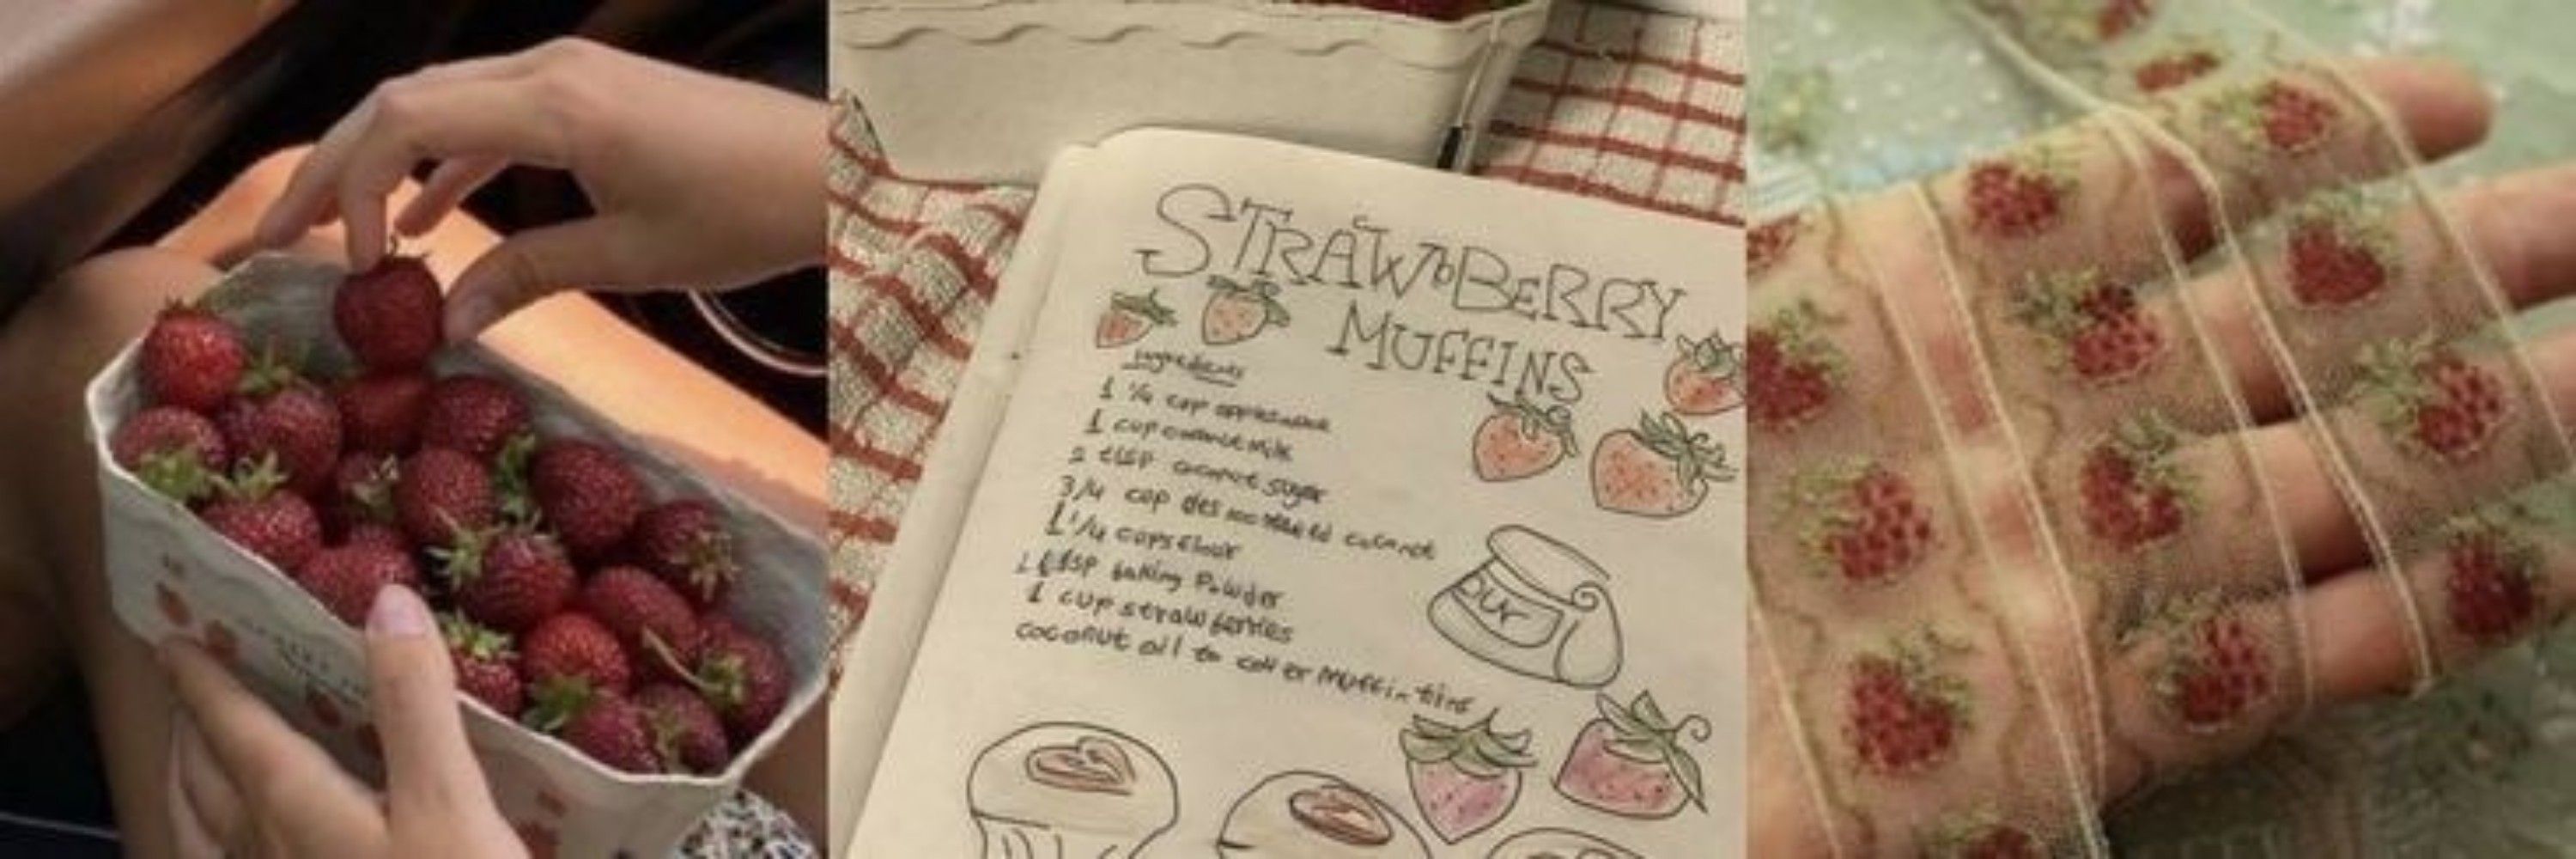 STRAWbBERRY
MUFFINS
ingredients
1 1/4 cup applesauce
1 cup coconut milk
2 tbsp coconut sugar
3/4 cup desiccated coconut
1 1/4 cups flour
1 tbsp baking Powder
1 cup strawberries
coconut oil to cover muffin tins